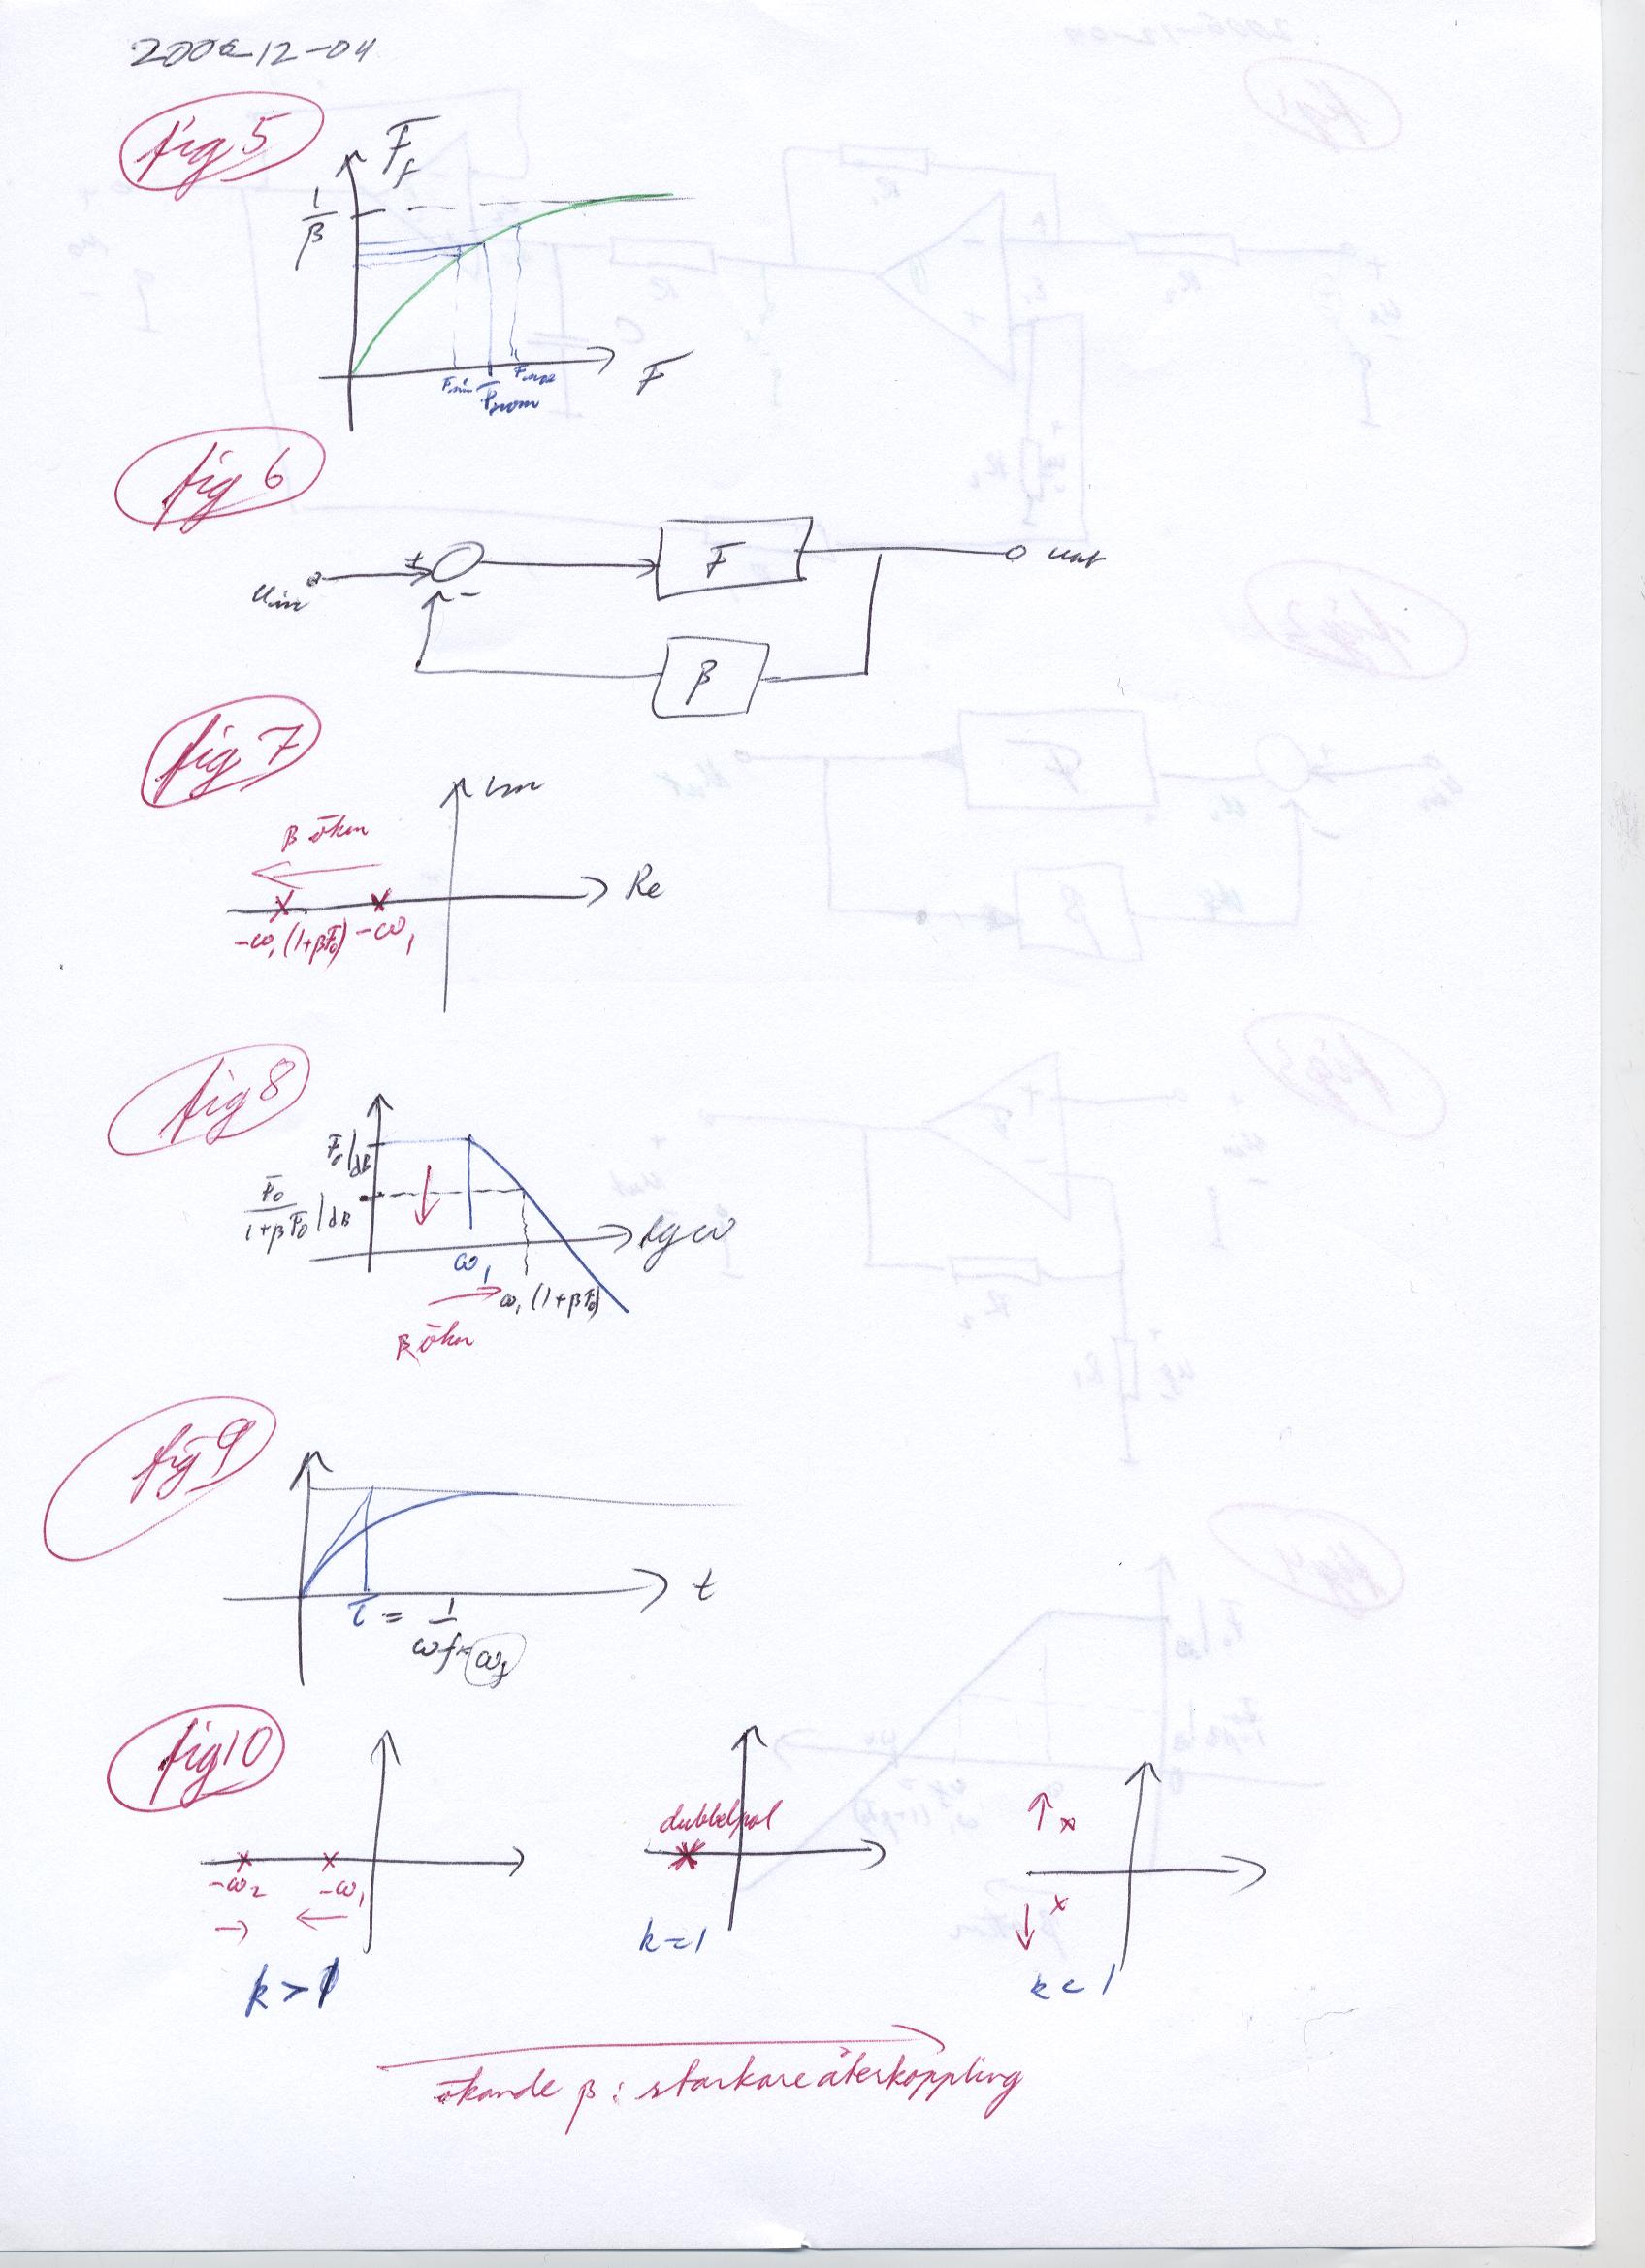 2006-12-04
fig 5
F_f
1/β
F_min F_nom F_max
F
fig 6
u_in + − F u_ut
β
fig 7
Im
β ökar
Re
-ω₁(1+βF₀) -ω₁
fig 8
F₀|dB
F₀/(1+βF₀)|dB
lg ω
ω₁
ω₁(1+βF₀)
β ökar
fig 9
t
τ = 1/ωf
fig 10
dubbelpol
-ω₂ -ω₁
k > 1
k = 1
k < 1
ökande β : starkare återkoppling